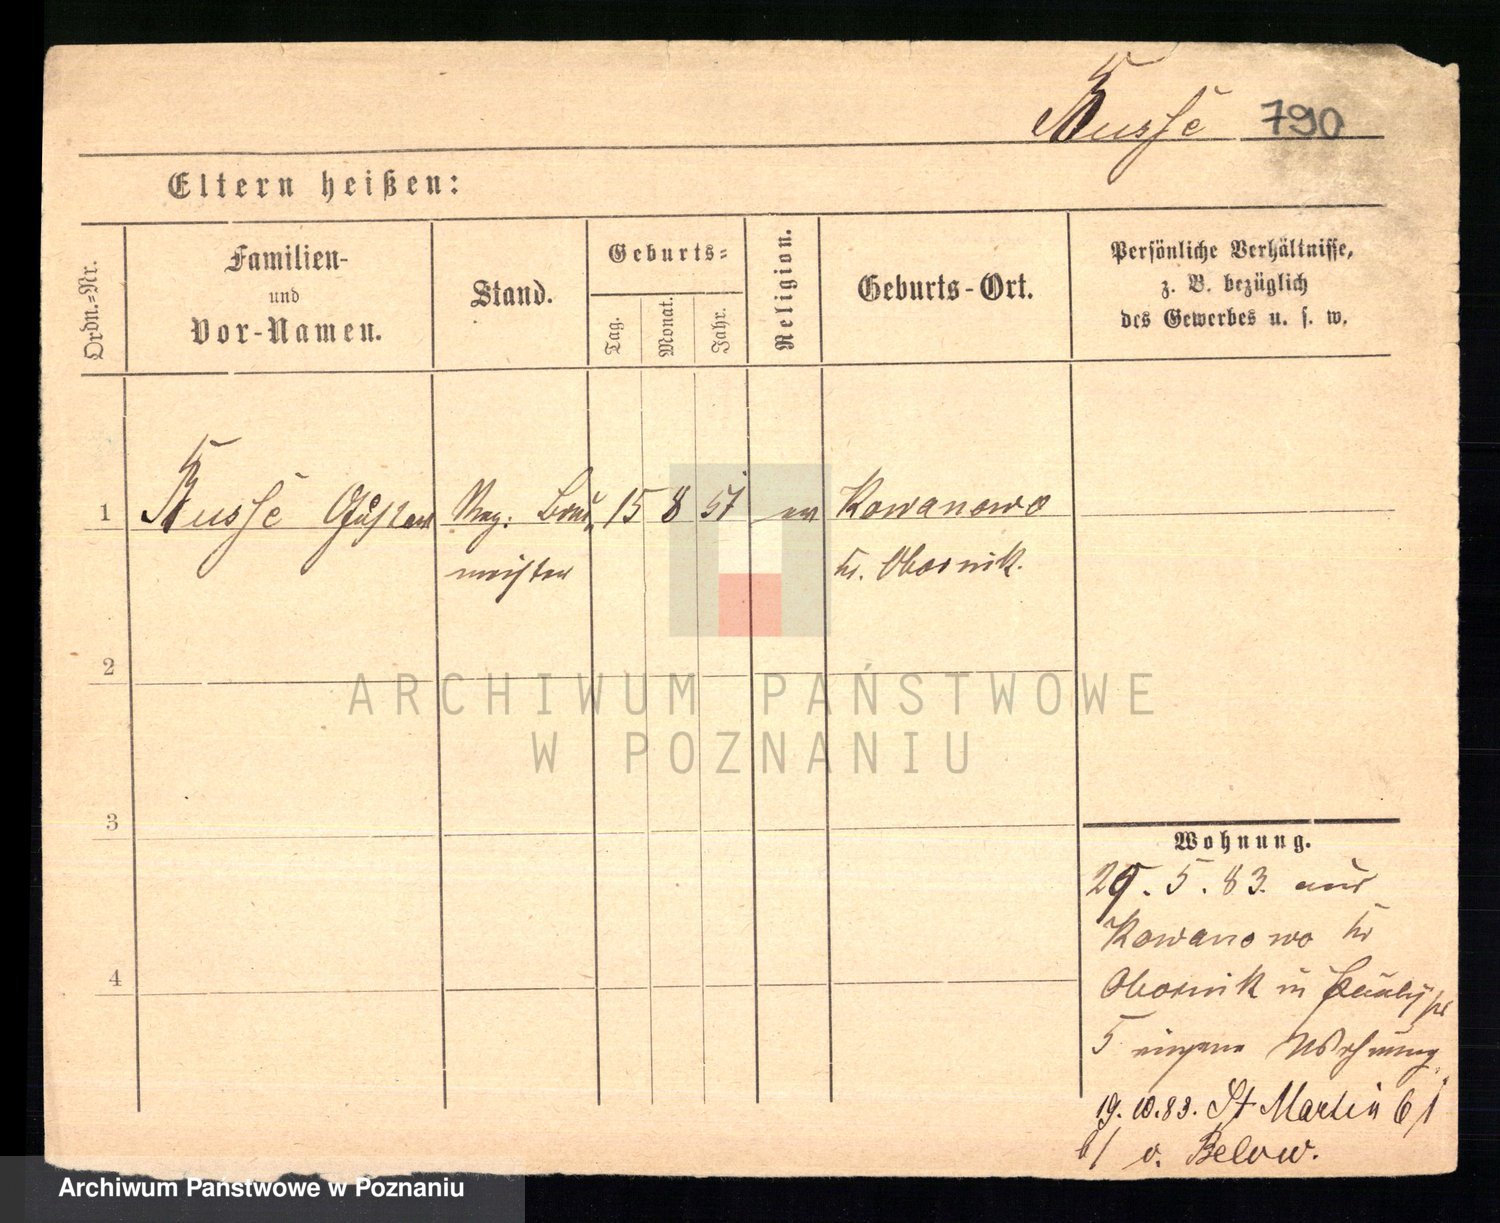 Russe 790
Eltern heißen:
Ordn.=Nr.
Familien-
und
Vor-Namen.
Stand.
Geburts=
Tag.
Monat.
Jahr.
Religion.
Geburts-Ort.
Persönliche Verhältnisse,
z. B. bezüglich
des Gewerbes u. s. w.
1 Gustav Reg. Bau 15 8 57 ev Kowanowo
meister Kr. Obornik.
2
ARCHIWUM PAŃSTWOWE
W POZNANIU
3
Wohnung.
5. 83. aus
Kowanowo Kr
4
Obornik in
5 eigene Wohnung
19. 10. 83. St Martin 61
b/ v. Below.
Archiwum Państwowe w Poznaniu